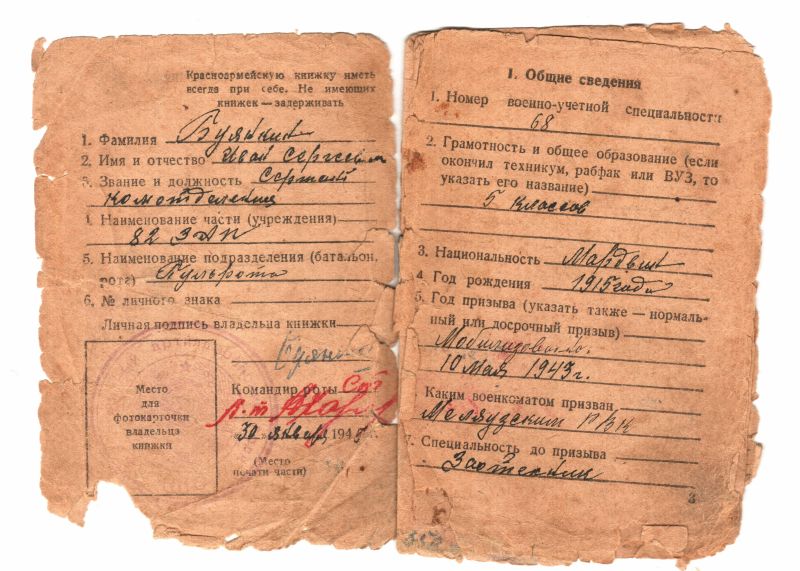 Красноармейскую книжку иметь
всегда при себе. Не имеющих
книжек — задерживать
1. Фамилия Буянкин
2. Имя и отчество Иван Сергеевич
3. Звание и должность Сержант
комотделения
4. Наименование части (учреждения)
82 ЗАП
5. Наименование подразделения (батальон,
рота) Пульрота
6. № личного знака
Личная подпись владельца книжки
Место
для
фотокарточки
владельца
книжки
Командир роты
"30" января 194
(Место
печати части)
1. Общие сведения
1. Номер военно-учетной специальности
68
2. Грамотность и общее образование (если
окончил техникум, рабфак или ВУЗ, то
указать его название)
5 классов
3. Национальность Мардвин
4. Год рождения 1915 года
5. Год призыва (указать также — нормаль-
ный или досрочный призыв)
10 мая 1943 г.
Каким военкоматом призван
РВК
7. Специальность до призыва
3